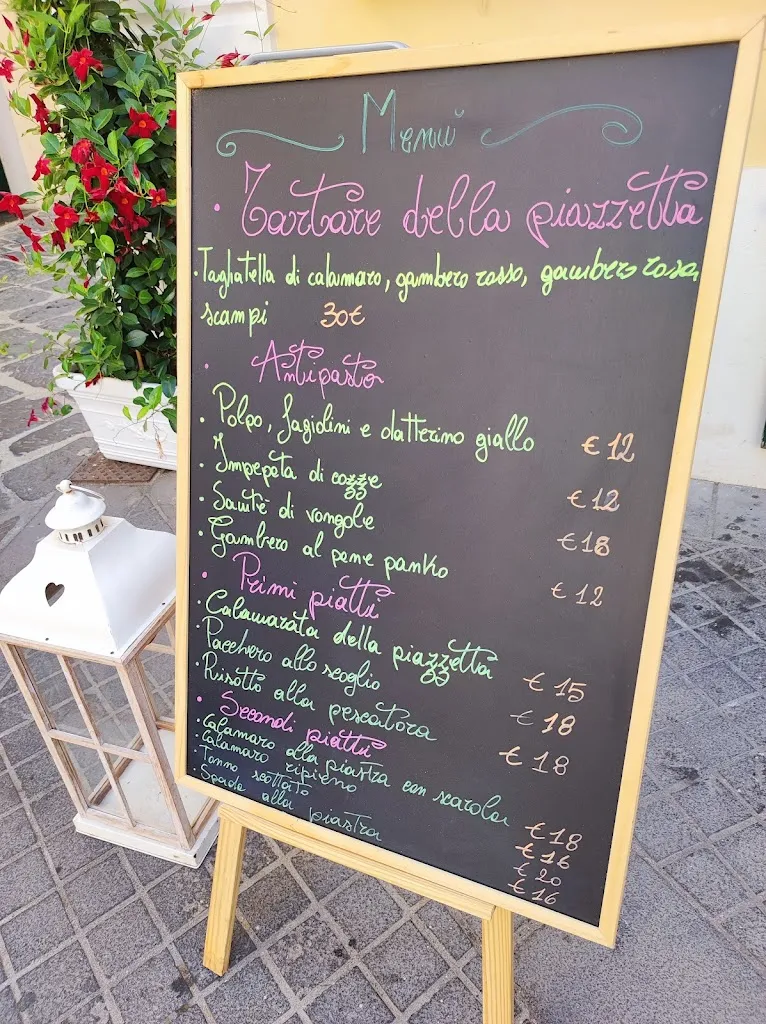 Menù
• Tartare della piazzetta
• Tagliatella di calamaro, gambero rosso, gambero rosa,
scampi 30€
• Antipasto
• Polpo, fagiolini e datterino giallo € 12
• Impepata di cozze € 12
• Sautè di vongole € 18
• Gambero al pane panko € 12
• Primi piatti
• Calamarata della piazzetta € 15
• Pacchero allo scoglio € 18
• Risotto alla pescatora € 18
• Secondi piatti
• Calamaro alla piastra con scarola € 18
• Calamaro ripieno € 16
• Tonno scottato € 20
• Spada alla piastra € 16